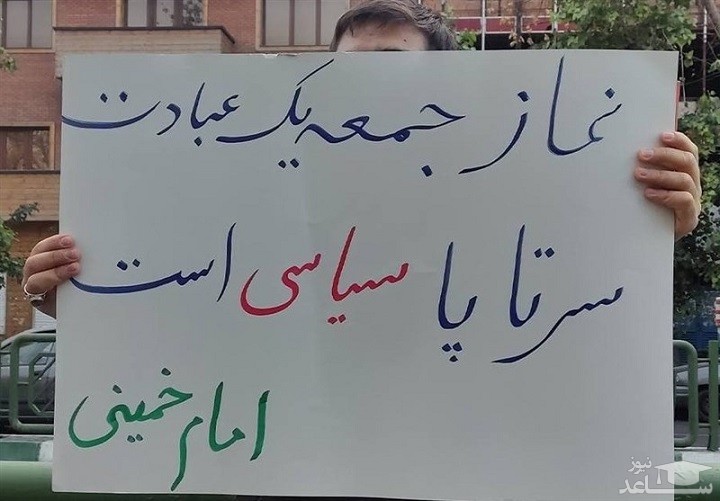 نماز جمعه یک عبادت
سر تا پا سیاسی است
امام خمینی
نیوز
ساعد